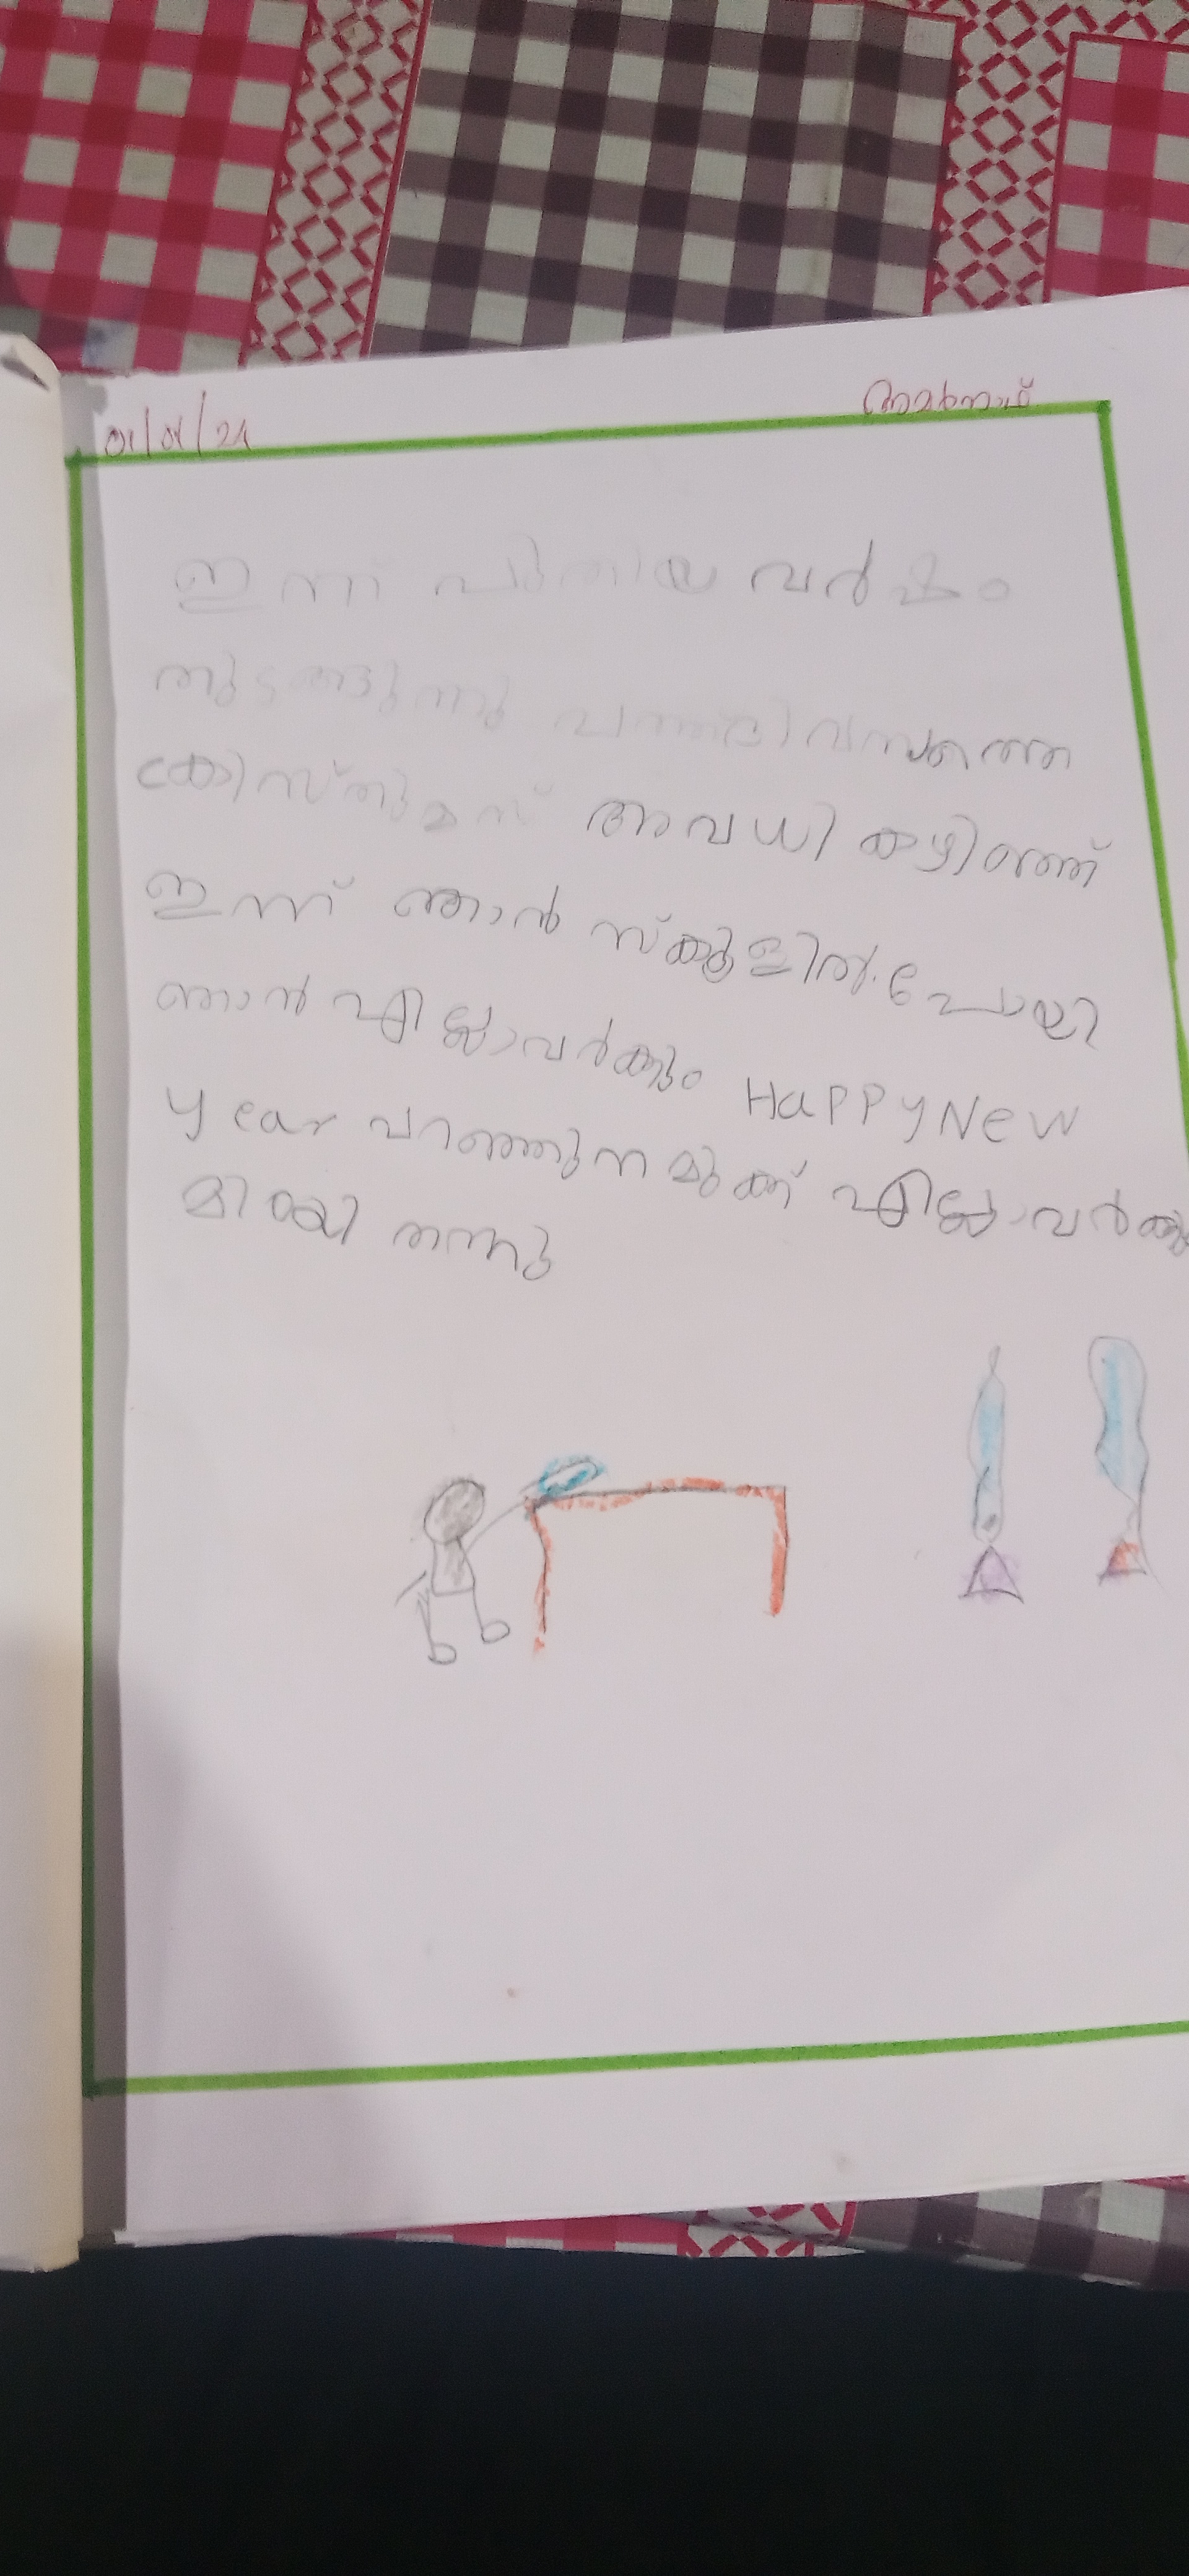 01/01/24 അമർനാഥ്
ഇന്ന് പുതിയ വർഷം
തുടങ്ങുന്നു പത്തുദിവസത്തെ
ക്രിസ്തുമസ് അവധി കഴിഞ്ഞ്
ഇന്ന് ഞാൻ സ്കൂളിൽ പോയി
ഞാൻ എല്ലാവർക്കും HaPPy NeW
year പറഞ്ഞു നമുക്ക് എല്ലാവർക്കും
മിഠായി തന്നു